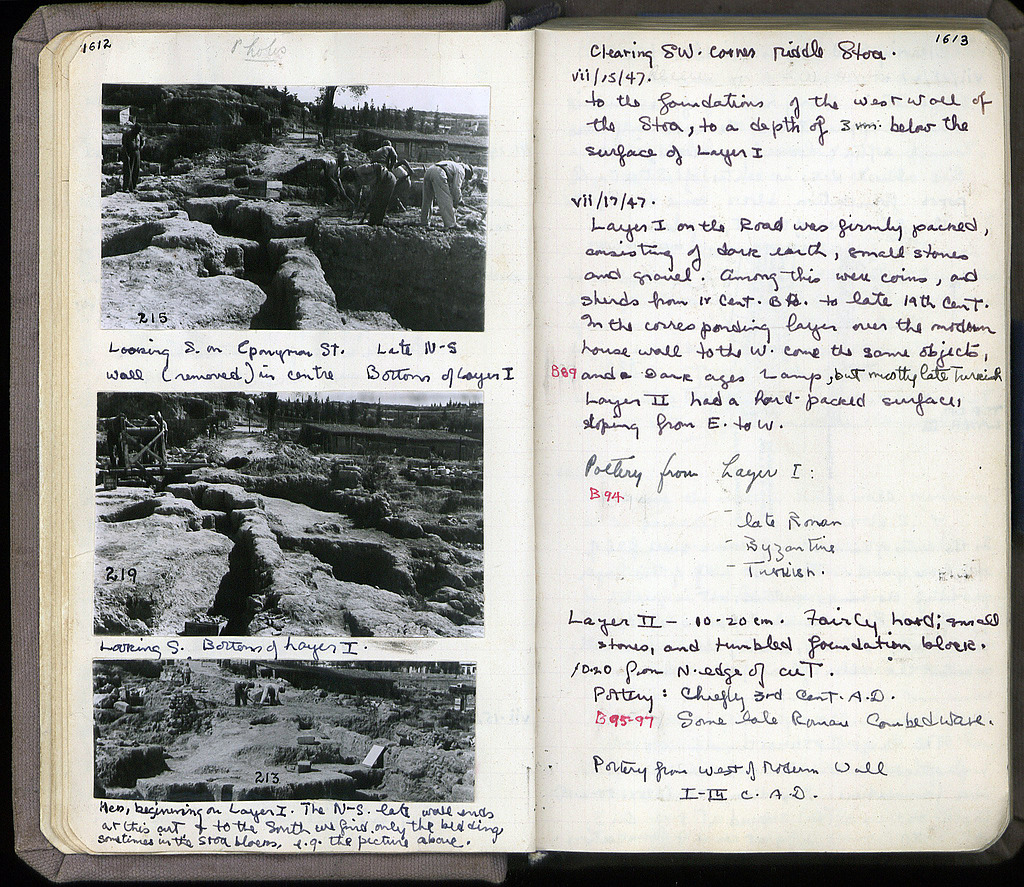 1612
Photos
215
Looking S. on Eponymon St. Late N-S
wall (removed) in centre Bottom of Layer I
219
Looking S. Bottom of Layer I.
213
Men, beginning on Layer I. The N-S. late wall ends
at this cut & to the South we find only the bedding,
sometimes in the Stoa blocks, e.g. the picture above.
1613
Clearing SW. corner Middle Stoa.
vii/15/47.
to the foundations of the west wall of
the Stoa, to a depth of 3 m. below the
surface of Layer I
vii/17/47.
Layer I on the Road was firmly packed,
consisting of dark earth, small stones
and gravel. Among this were coins, and
sherds from Cent. B.C. to late 19th Cent.
In the corresponding layer over the modern
house wall to the W. come the same objects,
B89 and a Dark ages Lamp, but mostly late Turkish
Layer II had a hard-packed surface,
sloping from E. to W.
Pottery from Layer I:
B94
- late Roman
- Byzantine
- Turkish.
Layer II - 10-20 cm. Fairly hard; small
stones, and tumbled foundation block.
10.20 from N. edge of cut.
Pottery: Chiefly 3rd Cent. A.D.
B95-97 Some late Roman Combed Ware.
Pottery from West of Modern Wall
I-III c. A.D.